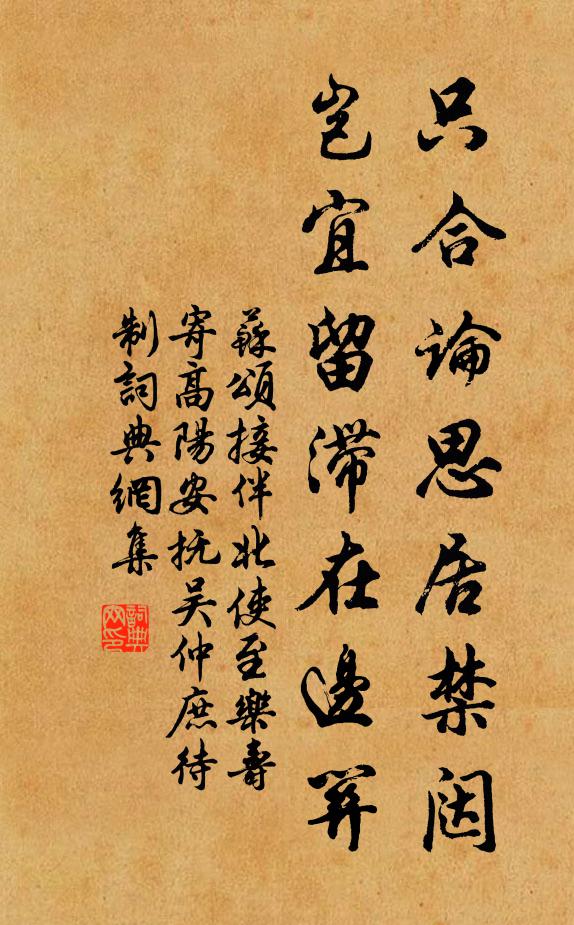 只合論思居禁闼
岂宜留滯在邊
蘇頌接伴北使至樂壽
寄高陽安抚吴仲庶待
制詞典網集
詞典
网印